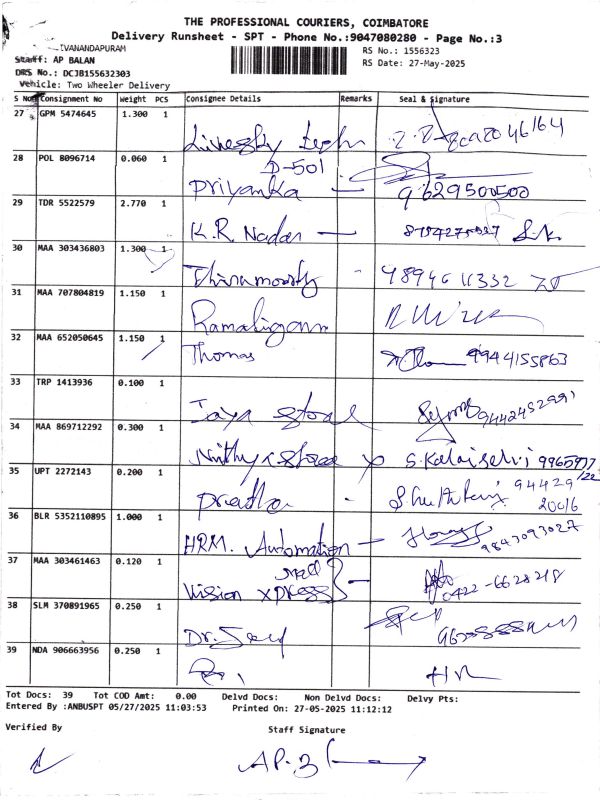 THE PROFESSIONAL COURIERS, COIMBATORE
Delivery Runsheet - SPT - Phone No.:9047080280 - Page No.:3
IVANANDAPURAM
RS No.: 1556323
Staff: AP BALAN
RS Date: 27-May-2025
DRS No.: DCJB155632303
Vehicle: Two Wheeler Delivery
S No Consignment No Weight PCS Consignee Details Remarks Seal & Signature
27 GPM 5474645 1.300 1
D-501
28 POL 8096714 0.060 1
Priyanka — 9629500500
29 TDR 5522579 2.770 1
K.R. Nadar —
30 MAA 303436803 1.300 1
Thiramoorthy - 9894611332
31 MAA 707804819 1.150 1
Ramalingam
32 MAA 652050645 1.150 1
Thomas 9944155863
33 TRP 1413936 0.100 1
Jaya store 9442452991
34 MAA 869712292 0.300 1
Nithya store S.Kalaiselvi
35 UPT 2272143 0.200 1
94429
20016
36 BLR 5352110895 1.000 1
HRM. Automation — 9843093027
37 MAA 303461463 0.120 1
Vision xpress — 0422-6628218
38 SLM 370891965 0.250 1
Dr.
39 NDA 906663956 0.250 1
Tot Docs: 39 Tot COD Amt: 0.00 Delvd Docs: Non Delvd Docs: Delvy Pts:
Entered By :ANBUSPT 05/27/2025 11:03:53 Printed On: 27-05-2025 11:12:12
Verified By Staff Signature
AP.